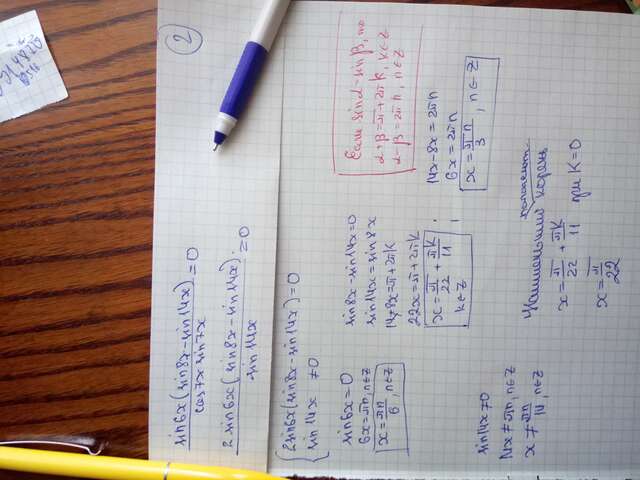 2
sin6x(sin8x-sin14x)/cos7x sin7x = 0
2 sin6x(sin8x-sin14x)/sin14x = 0
{2sin6x(sin8x-sin14x)=0
sin14x ≠0
sin6x=0
6x=πn, n∈Z
x=πn/6, n∈Z
sin8x-sin14x=0
sin14x=sin8x
14x+8x=π+2πk
22x=π+2πk
x=π/22+πk/11
k∈Z
Если sinα=sinβ, то
α+β=π+2πk, k∈Z
α-β=2πn, n∈Z
14x-8x=2πn
6x=2πn
x=πn/3, n∈Z
sin14x≠0
14x≠πn, n∈Z
x≠πn/14, n∈Z
Наименьший положит. корень
x=π/22+πk/11 при k=0
x=π/22